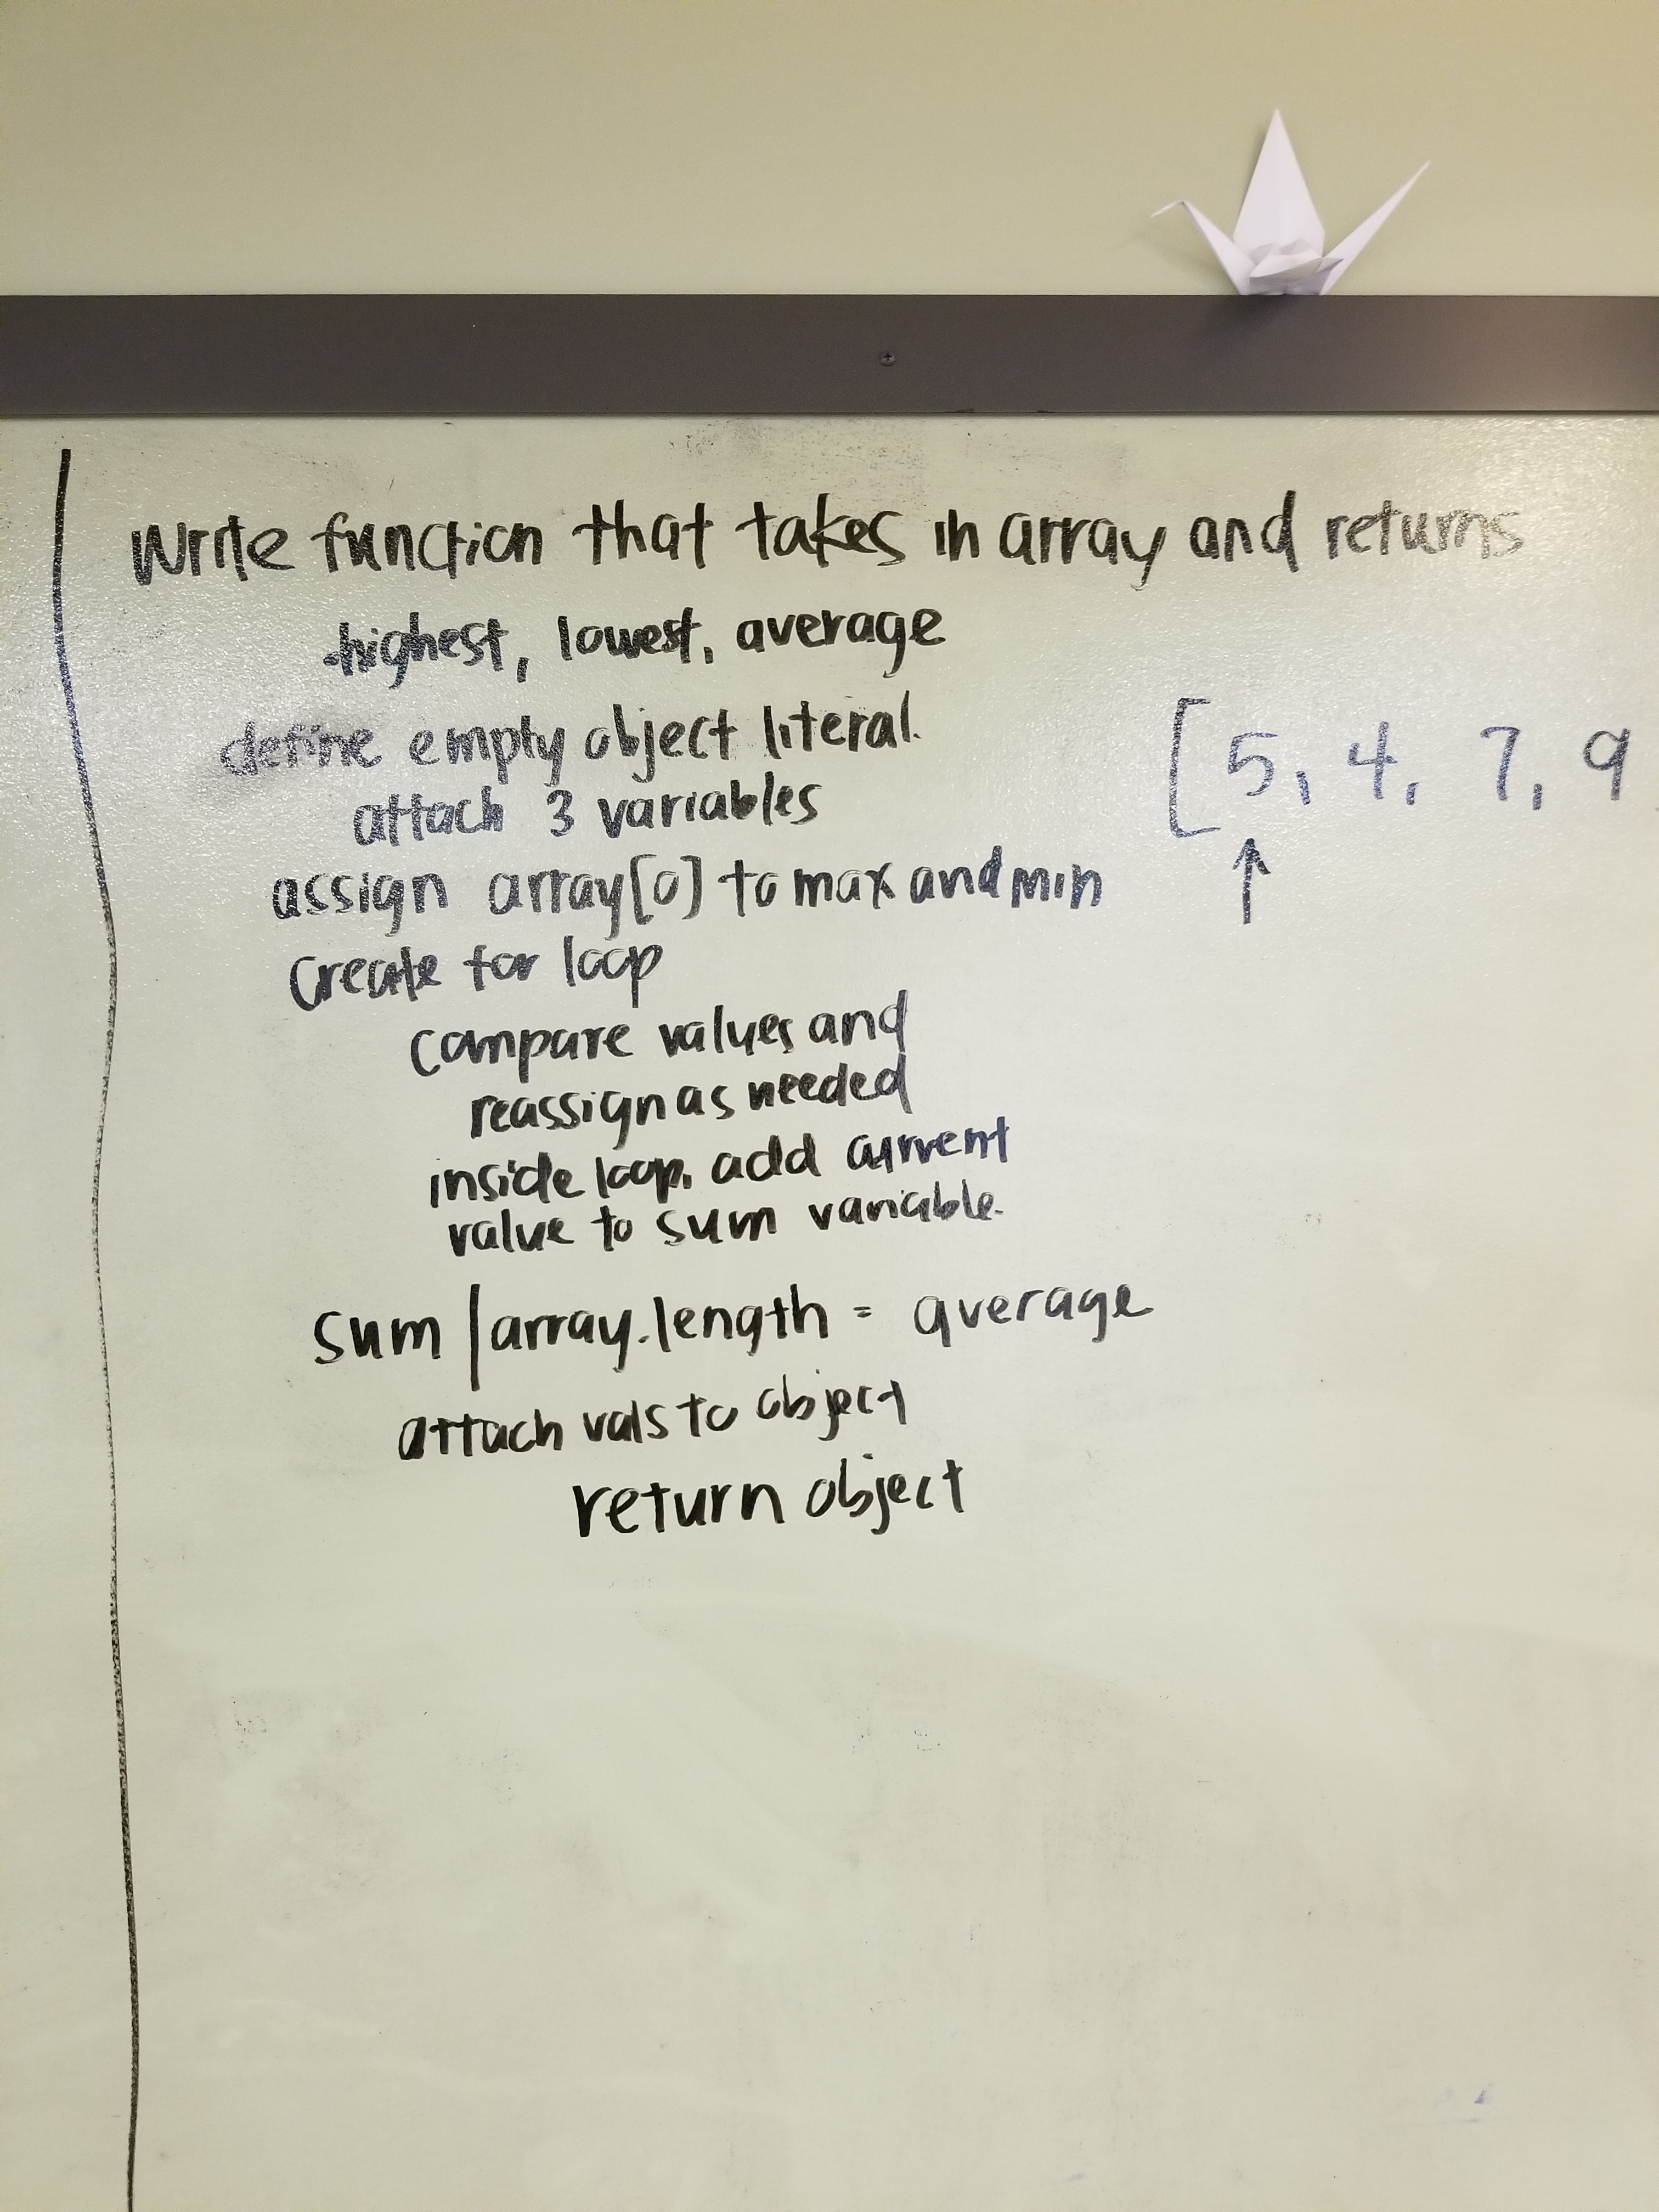 Write function that takes in array and returns
highest, lowest, average
define empty object literal.
attach 3 variables
assign array[0] to max and min
create for loop
compare values and
reassign as needed
inside loop, add current
value to sum variable.
sum / array.length = average
attach vals to object
return object
[5, 4, 7, 9
↑